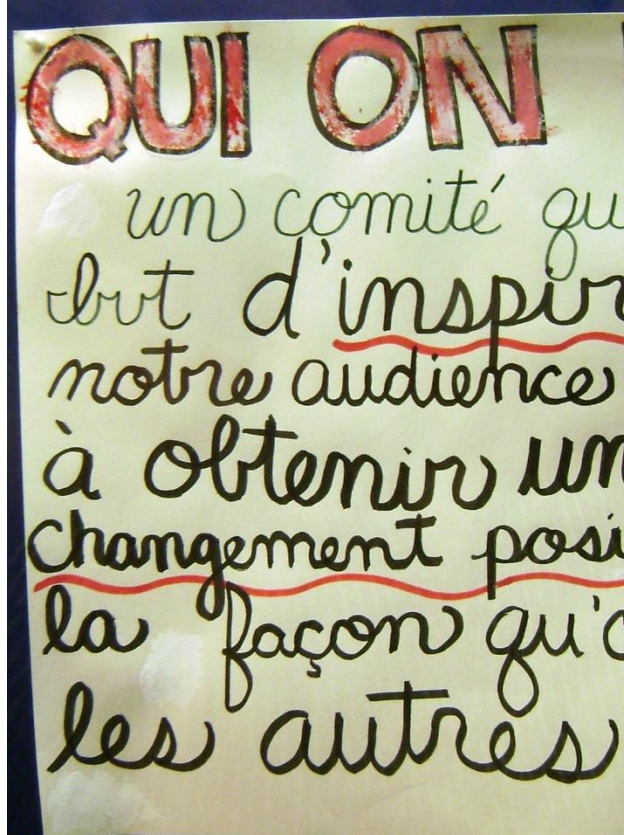 QUI ON
un comité qu
but d'inspir
notre audience
à obtenir un
changement posi
la façon qu'
les autres